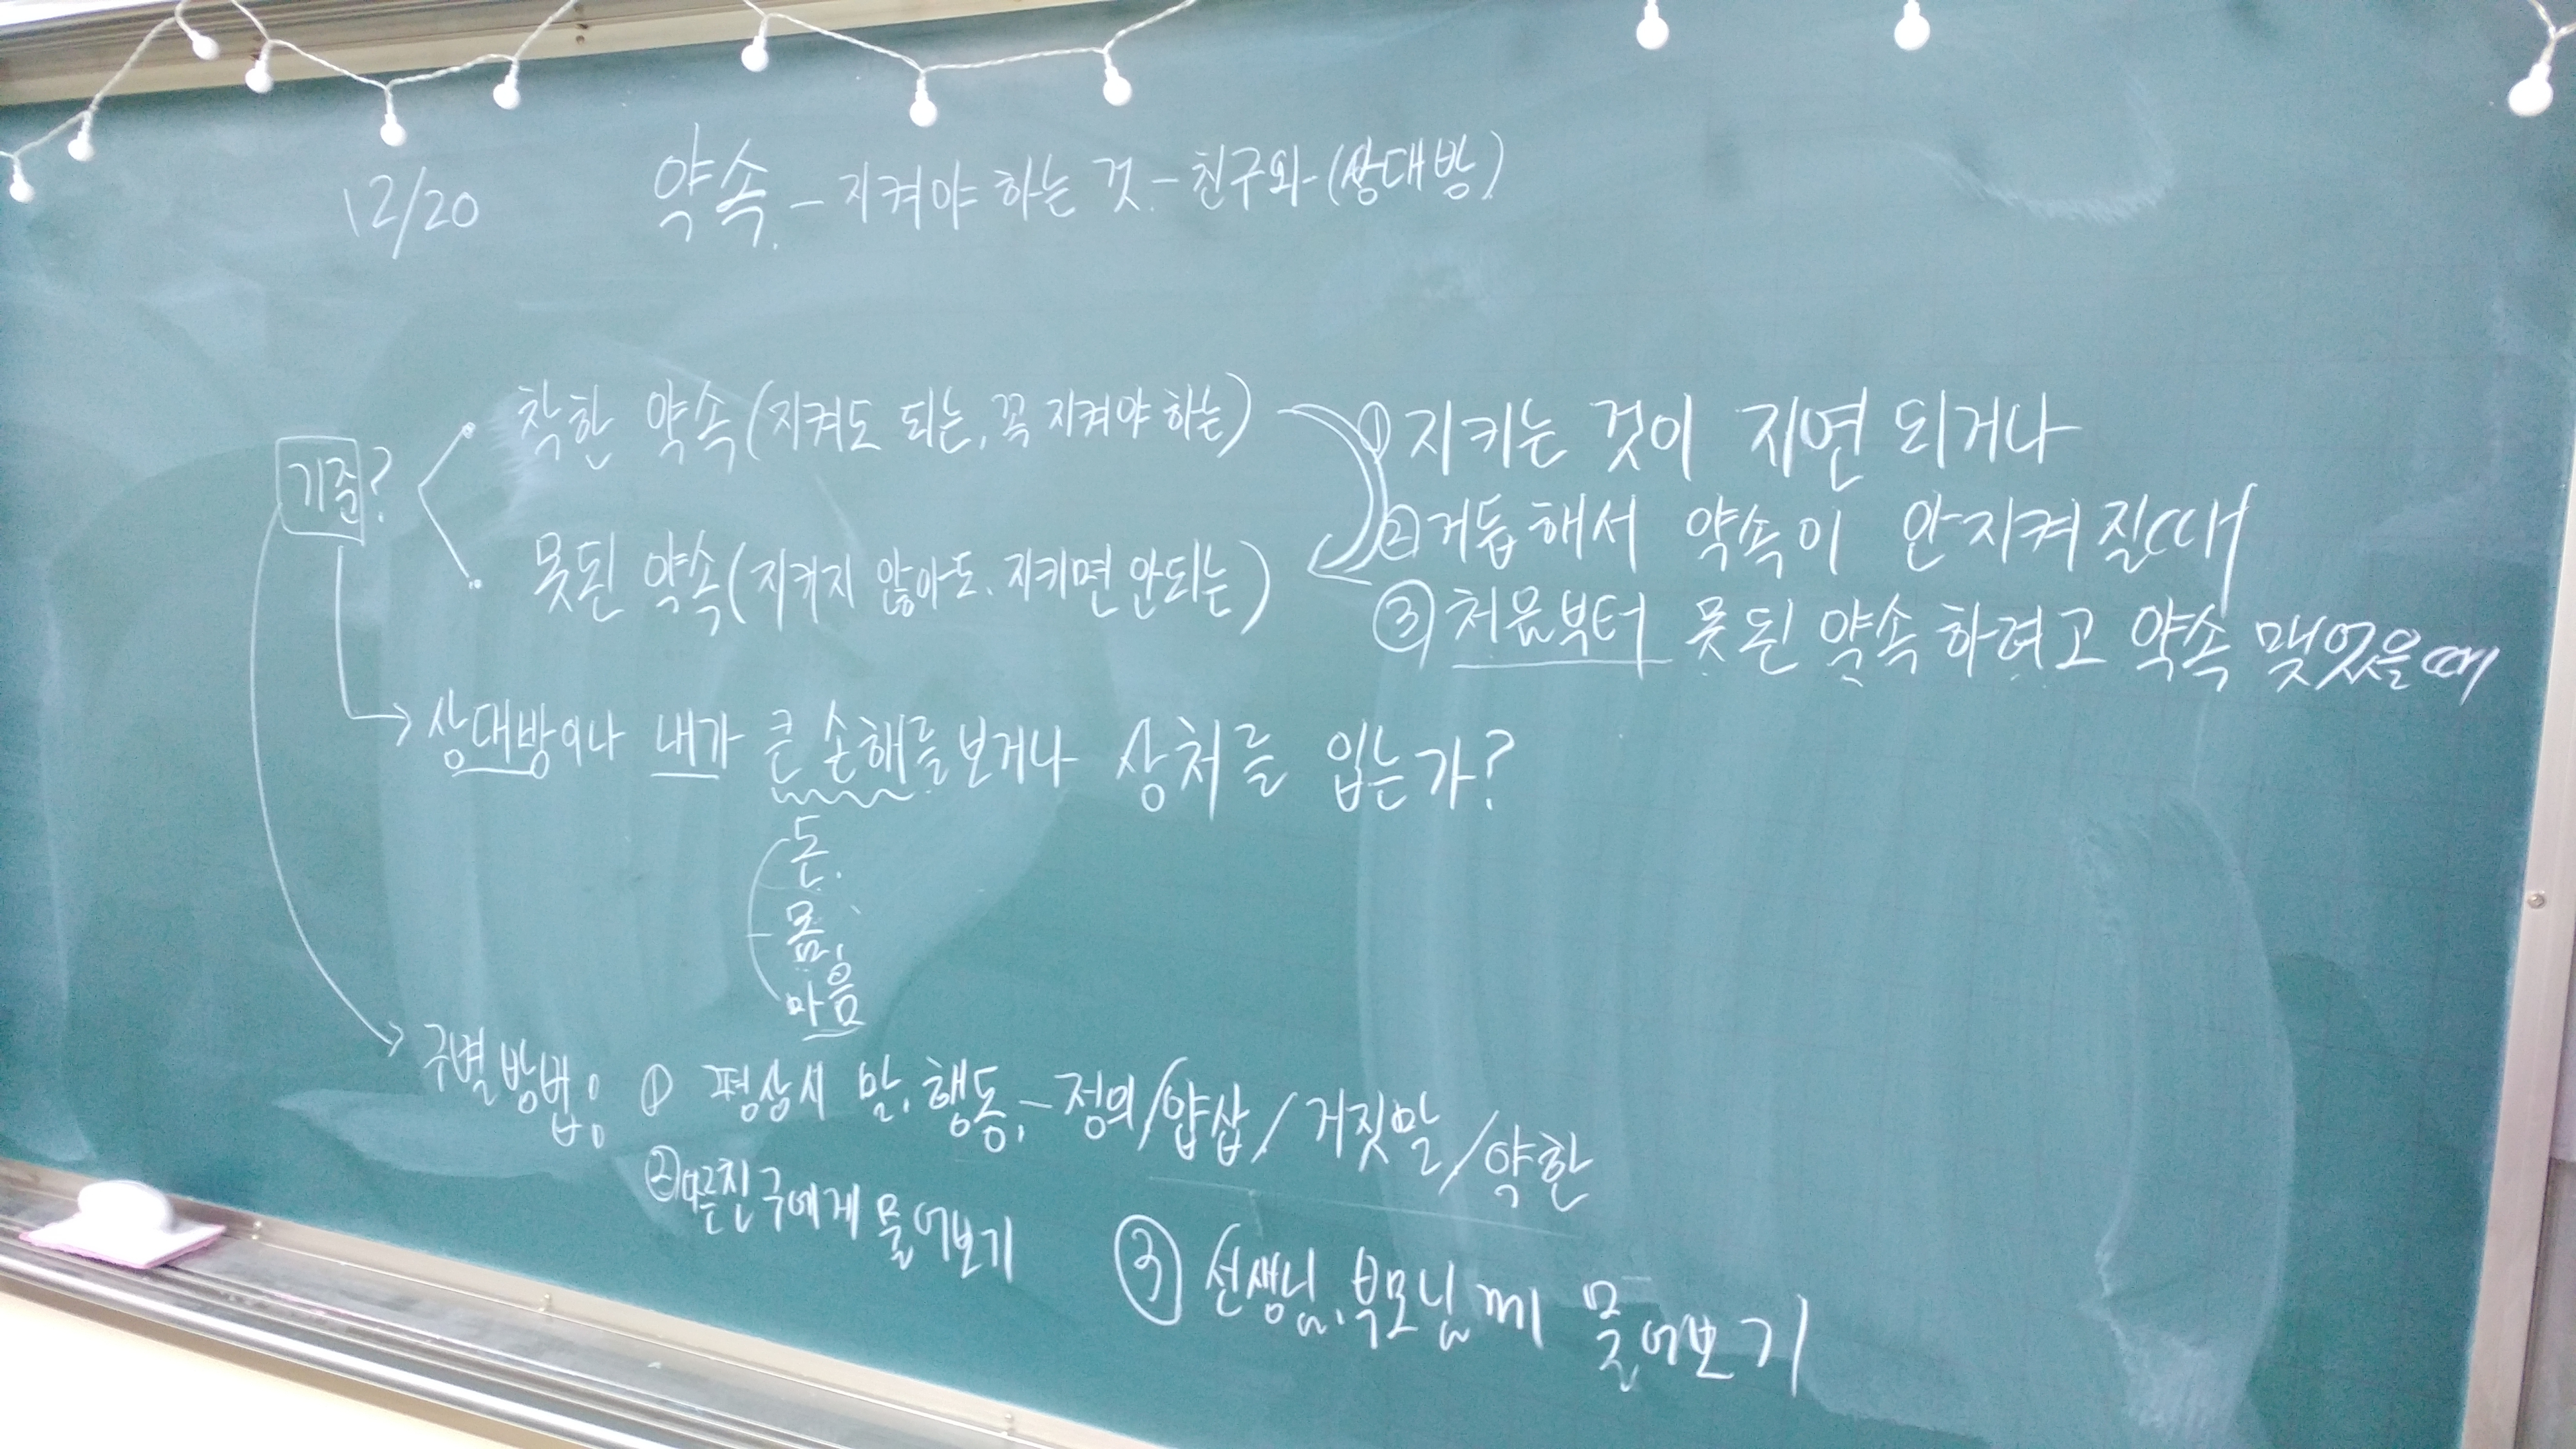 12/20 약속 - 지켜야 하는 것 - 친구와 (상대방)
기준?
착한 약속 (지켜도 되는, 꼭 지켜야 하는)
못된 약속 (지키지 않아도. 지키면 안되는)
① 지키는 것이 지연 되거나
② 거듭해서 약속이 안지켜 질때
③ 처음부터 못된 약속 하려고 약속 맺었을때
→ 상대방이나 내가 큰 손해를 보거나 상처를 입는가?
돈.
몸,
마음
→ 구별 방법; ① 평상시 말, 행동, - 정의/얍삽/거짓말/약한
② 다른친구에게 물어보기
③ 선생님, 부모님께 물어보기